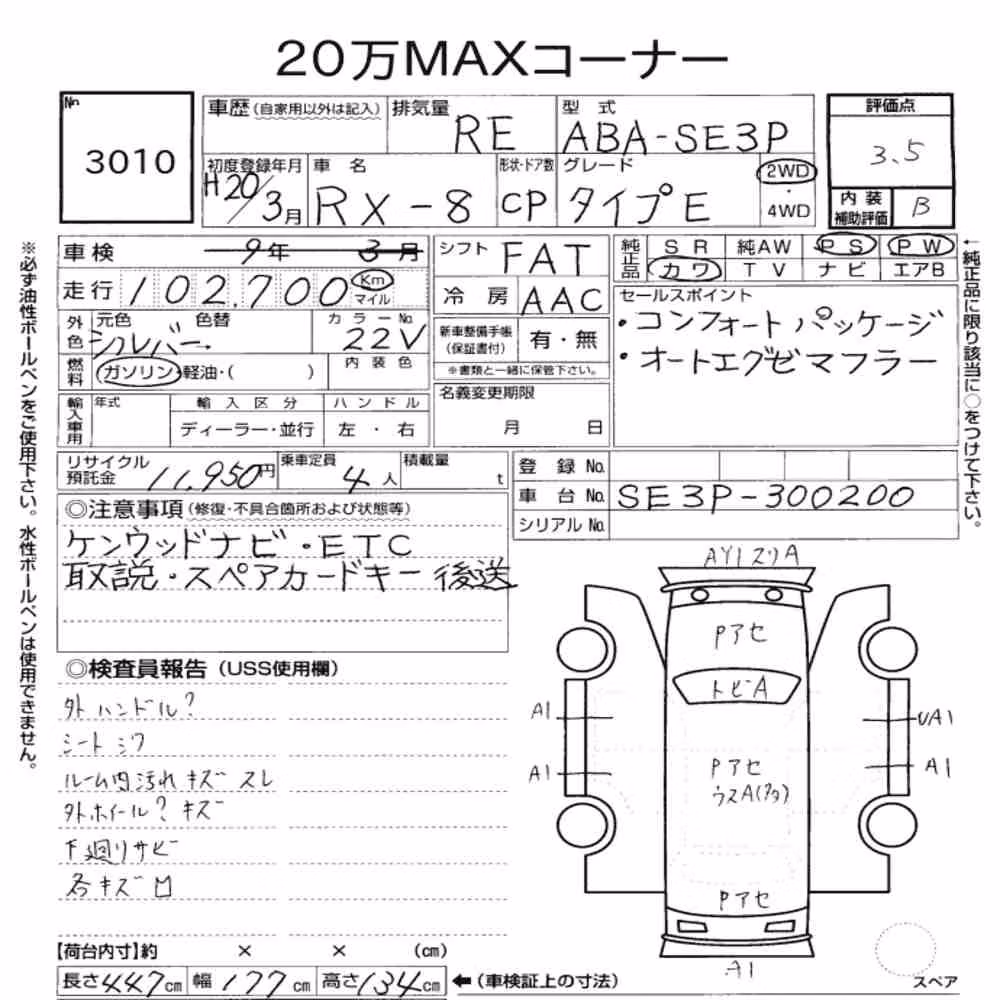 20万MAXコーナー
No.
3010
車歴(自家用以外は記入)
排気量
RE
型式
ABA-SE3P
評価点
3.5
初度登録年月
H20/3月
車名
RX-8
形状・ドア数
CP
グレード
タイプE
2WD
・
4WD
内装
補助評価
B
車検 9年 3月
シフト
FAT
純正品
SR 純AW PS PW
カワ TV ナビ エアB
走行 102,700 Km
マイル
冷房
AAC
セールスポイント
・コンフォートパッケージ
・オートエグゼマフラー
外色
元色 色替
シルバー
カラーNo.
22V
新車整備手帳
(保証書付)
有・無
※書類と一緒に保管下さい。
燃料
ガソリン・軽油・( )
内装色
名義変更期限
月 日
輸入車用
年式
輸入区分
ディーラー・並行
ハンドル
左・右
リサイクル
預託金
11,950円
乗車定員
4人
積載量
t
登録No.
車台No. SE3P-300200
シリアルNo.
◎注意事項(修復・不具合箇所および状態等)
ケンウッドナビ・ETC
取説・スペアカードキー 後送
◎検査員報告(USS使用欄)
外ハンドル?
シートシワ
ルーム内汚れ キズ スレ
外ホイール? キズ
下廻りサビ
各キズ凹
Pアセ
トビA
A1
UA1
A1
A1
Pアセ
ウスA
Pアセ
A1
スペア
【荷台内寸】約 × × (cm)
長さ447cm 幅177cm 高さ134cm ←(車検証上の寸法)
※必ず油性ボールペンをご使用下さい。水性ボールペンは使用できません。
←純正品に限り該当に○をつけて下さい。